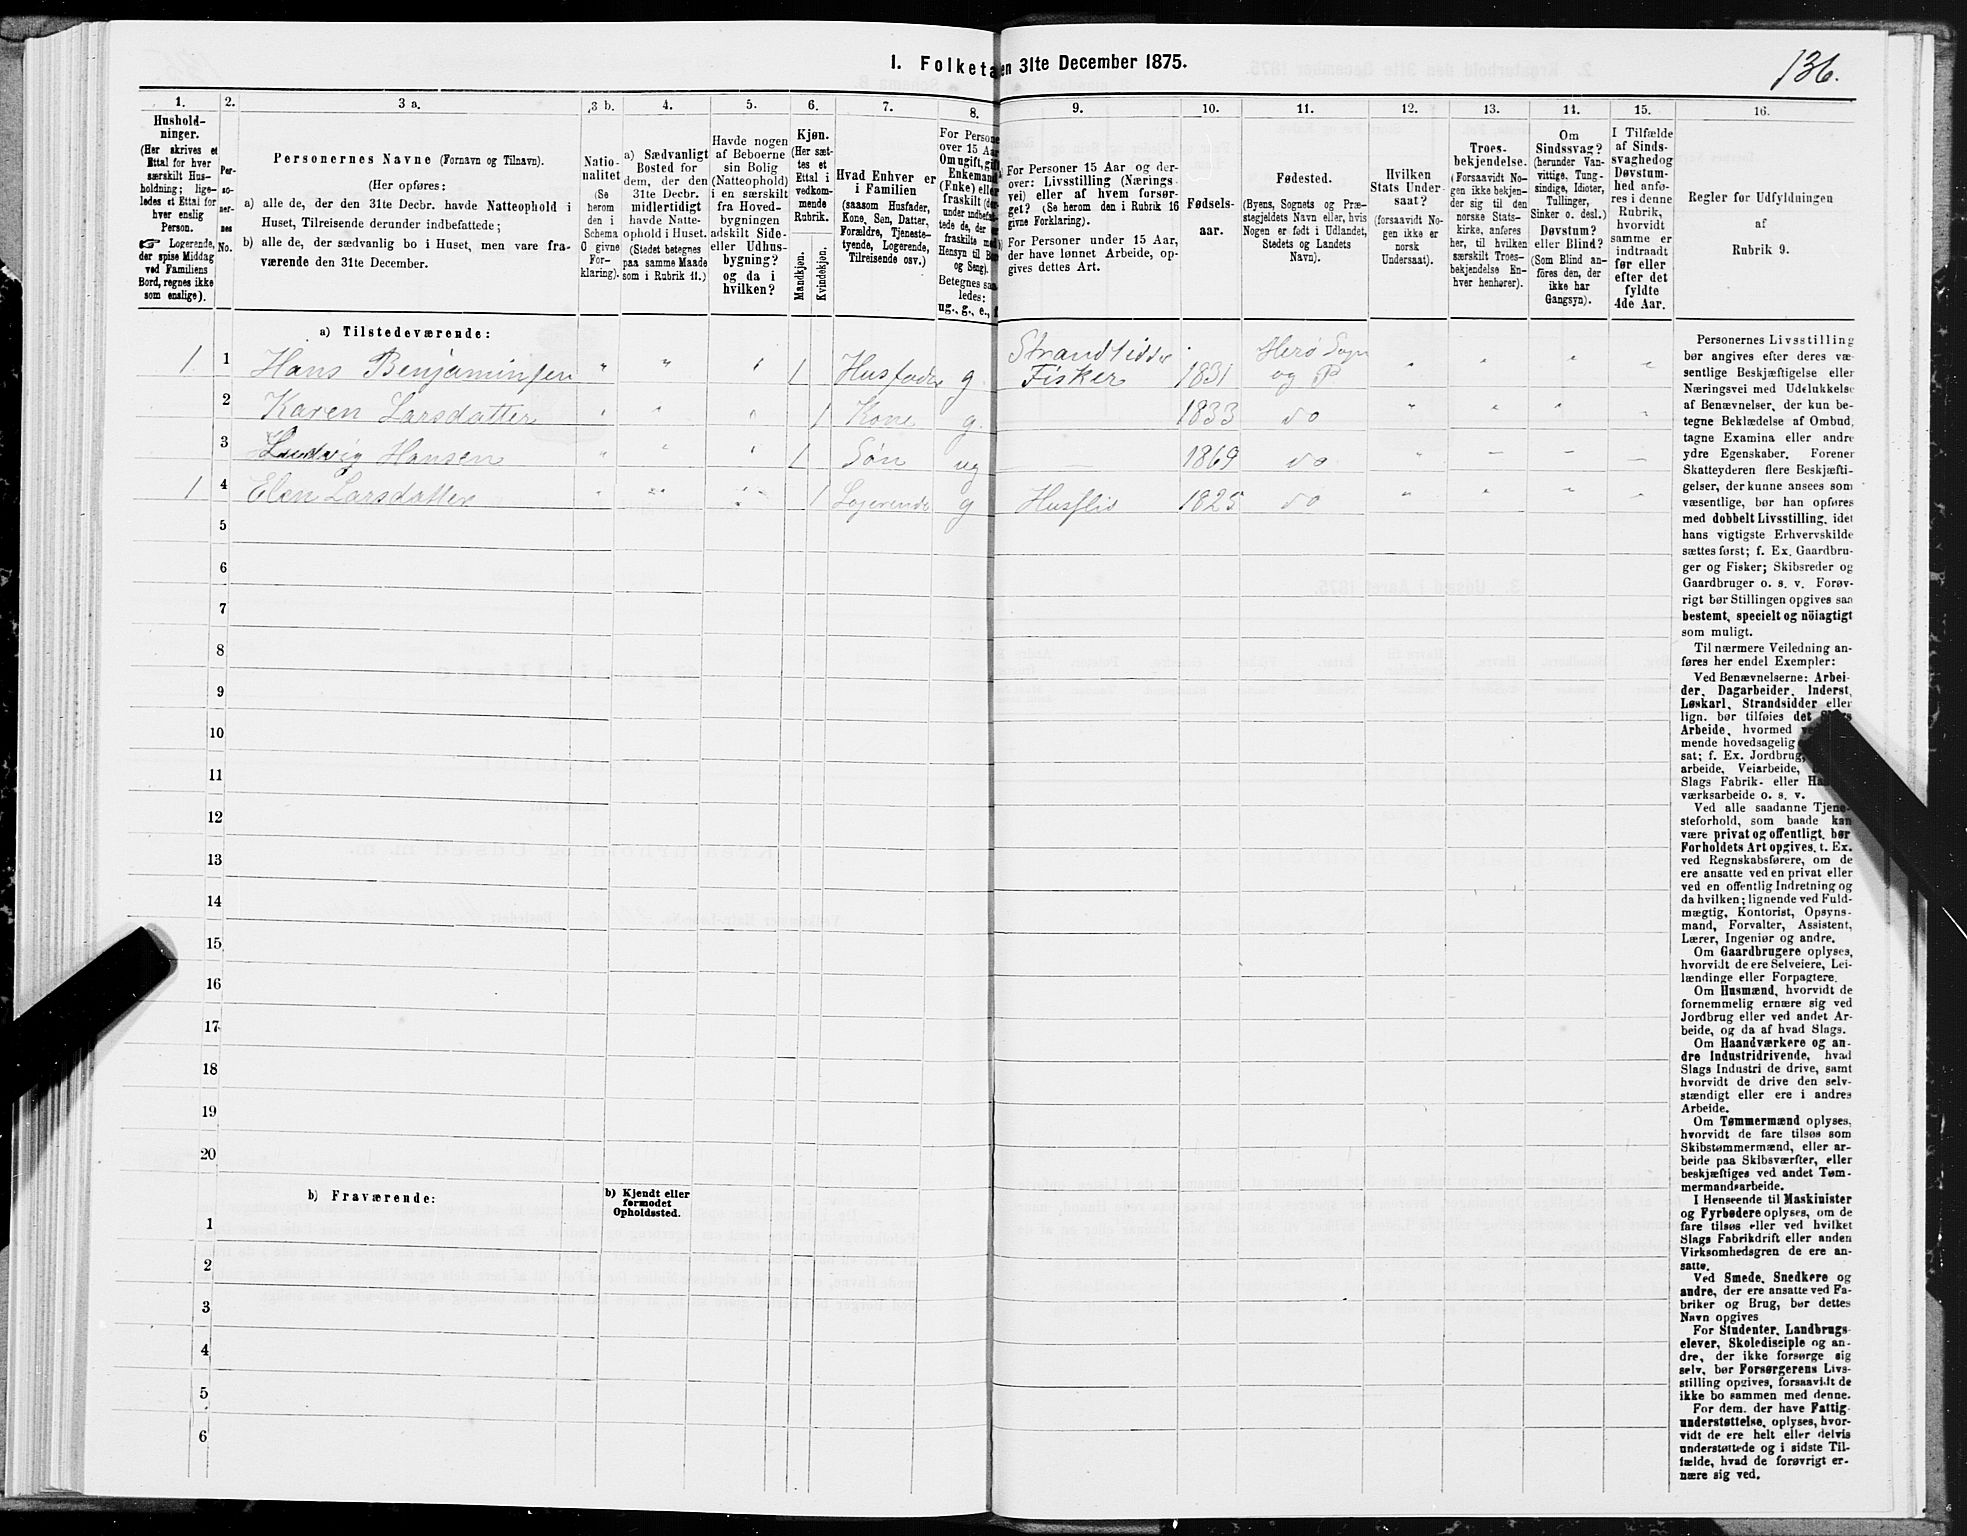 136.
I. Folketa en 31te December 1875.
1. 2. 3 a. 3 b. 4. 5. 6. 7. 8. 9. 10. 11. 12. 13. 14. 15. 16.
Hushold-
ninger.
(Her skrives et
Ettal for hver
særskilt Hus-
holdning; lige-
ledes et Ettal for
hver enslig
Person.
☞ Logerende,
der spise Middag
ved Familiens
Bord, regnes ikke
som enslige).
Per-
so-
ner-
nes
No.
Personernes Navne (Fornavn og Tilnavn).
(Her opføres:
a) alle de, der den 31te Decbr. havde Natteophold i
Huset, Tilreisende derunder indbefattede;
b) alle de, der sædvanlig bo i Huset, men vare fra-
værende den 31te December.
Natio-
nalitet
(Se
herom
den i
Schema
O givne
For-
klaring).
a) Sædvanligt
Bosted for
dem, der den
31te Decbr.
midlertidigt
havde Natte-
ophold i Huset.
(Stedet betegnes
paa samme Maade
som i Rubrik 11.)
Havde nogen
af Beboerne
sin Bolig
(Natteophold)
i en særskilt
fra Hoved-
bygningen
adskilt Side-
eller Udhus-
bygning?
og da i
hvilken?
Kjøn.
(Her sæt-
tes et
Ettal i
vedkom-
mende
Rubrik.
Mandkjøn.
Kvindekjøn.
Hvad Enhver er
i Familien
(saasom Husfader,
Kone, Søn, Datter,
Forældre, Tjeneste-
tyende, Logerende,
Tilreisende osv.)
For Persone
over 15 Aar
Om ugift, gif
Enkemand
(Enke) elle
fraskilt
under indbefat-
tede de, der
fraskilte me
Hensyn til Bo
og Seng).
Betegnes saa
ledes:
ug., g., e., f
a) For Personer 15 Aar og der-
over: Livsstilling (Nærings-
vei) eller af hvem forsør-
get? (Se herom den i Rubrik 16
givne Forklaring).
b) For Personer under 15 Aar,
der have lønnet Arbeide, op-
gives dettes Art.
Fødsels-
aar.
Fødested.
(Byens, Sognets og Præ-
stegjeldets Navn eller, hvis
Nogen er født i Udlandet,
Stedets og Landets
Navn).
Hvilken
Stats Under-
saat?
(forsaavidt No-
gen ikke er
norsk
Undersaat).
Troes-
bekjendelse.
(Forsaavidt No-
gen ikke bekjen-
der sig til den
norske Stats-
kirke, anføres
her, til hvilken
særskilt Troes-
bekjendelse En-
hver henhører).
Om
Sindssvag?
(herunder Van-
vittige, Tung-
sindige, Idioter,
Tullinger,
Sinker o. desl.)
Døvstum?
eller Blind?
(Som Blind an-
føres den, der
ikke har
Gangsyn).
I Tilfælde
af Sinds-
svaghed og
Døvstum-
hed anfø-
res i denne
Rubrik,
hvorvidt
samme er
indtraadt
før eller
efter det
fyldte
4de Aar.
Regler for Udfyldningen
af
Rubrik 9.
a) Tilstedeværende:
1 1 Hans Benjaminsen " " " 1 Husfader g. Strandsidder Fisker 1831 Herø Sogn og P " " " "
2 Karen Larsdatter " " " 1 Kone g. 1833 do " " " "
3 Ludvig Hansen " " " 1 Søn ug 1869 do " – – –
1 4 Elen Larsdatter " " " 1 Logerende g Husflid 1825 do " " " "
5
6
7
8
9
10
11
12
13
14
15
16
17
18
19
20
b) Fraværende:
b) Kjendt eller
formodet
Opholdssted.
1
2
3
4
5
6
Personernes Livsstilling
bør angives efter deres væ-
sentlige Beskjæftigelse eller
Næringsvei med Udelukkelse
af Benævnelser, der kun be-
tegne Beklædelse af Ombud,
tagne Examina eller andre
ydre Egenskaber. Forener
Skatteyderen flere Beskjæfti-
gelser, der kunne ansees som
væsentlige, bør han opføres
med dobbelt Livsstilling, idet
hans vigtigste Erhvervskilde
sættes først; f. Ex. Gaardbru-
ger og Fisker; Skibsreder og
Gaardbruger o. s. v. Forøv-
rigt bør Stillingen opgives saa
bestemt, specielt og nöiagtigt
som muligt.
Til nærmere Veiledning an-
føres her endel Exempler:
Ved Benævnelserne: Arbei-
der, Dagarbeider, Inderst,
Løskarl, Strandsidder eller
lign. bør tilføies det Slags
Arbeide, hvormed ved
mende hovedsagelig
sat; f. Ex. Jordbrug,
arbeide, Veiarbeide,
Slags Fabrik- eller Ha
værksarbeide o. s. v.
Ved alle saadanne Tjene-
steforhold, som baade kan
være privat og offentligt, bør
Forholdets Art opgives, t. Ex.
ved Regnskabsførere, om de
ere ansatte ved en privat eller
ved en offentlig Indretning og
da hvilken; lignende ved Fuld-
mægtig, Kontorist, Opsyns-
mand, Forvalter, Assistent,
Lærer, Ingeniør og andre.
Om Gaardbrugere oplyses,
hvorvidt de ere Selveiere, Lei-
lændinge eller Forpagtere.
Om Husmænd, hvorvidt de
fornemmelig ernære sig ved
Jordbrug eller ved andet Ar-
beide, og da af hvad Slags.
Om Haandværkere og an-
dre Industridrivende, hvad
Slags Industri de drive, samt
hvorvidt de drive den selv-
stændigt eller ere i andres
Arbeide.
Om Tømmermænd oplyses,
hvorvidt de fare tilsøs som
Skibstømmermænd, eller ar-
beide paa Skibsværfter, eller
beskjæftiges ved andet Tøm-
mermandsarbeide.
I Henseende til Maskinister
og Fyrbødere oplyses, om de
fare tilsøs eller ved hvilket
Slags Fabrikdrift eller anden
Virksomhedsgren de ere an-
satte.
Ved Smede, Snedkere og
andre, der ere ansatte ved Fa-
briker og Brug, bør dettes
Navn opgives
For Studenter, Landbrugs-
elever, Skoledisciple og an-
dre, der ikke forsørge sig
selv, bør Forsørgerens Livs-
stilling opgives, forsaavidt de
ikke bo sammen med denne.
For dem, der have Fattig-
understøttelse, oplyses, hvor-
vidt de ere helt eller delvis
understøttede og i sidste Til-
fælde, hvad de forøvrigt er-
nære sig ved.